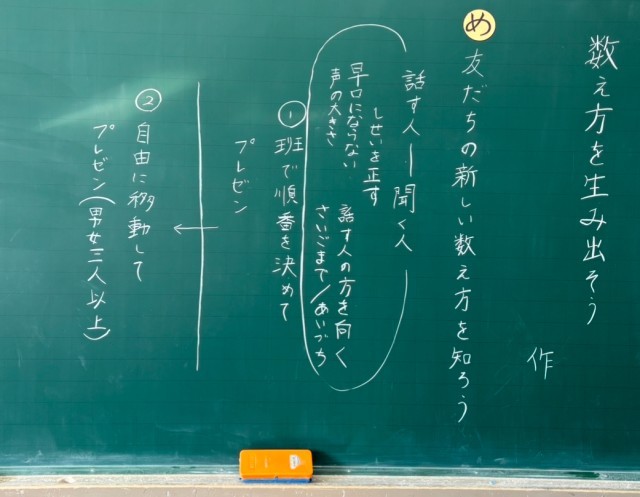 数え方を生み出そう
作
め 友だちの新しい数え方を知ろう
話す人ー聞く人
しせいを正す
早口にならない
声の大きさ
話す人の方を向く
さいごまで/あいづち
① 班で順番を決めて
プレゼン
←
② 自由に移動して
プレゼン(男女三人以上)